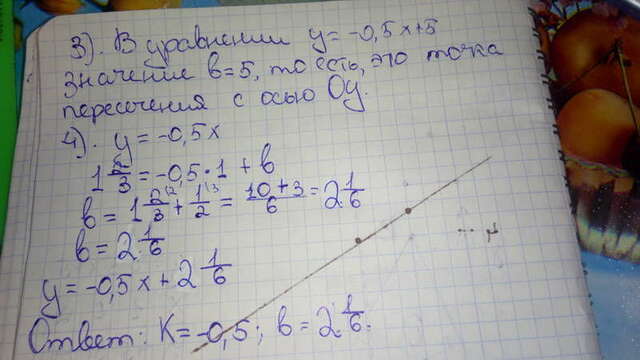 3). В уравнении y = -0,5x+5
значение b=5, то есть, это точка
пересечения с осью Oy.
4). y = -0,5x
1 2/3 = -0,5·1 + b
b = 1 2/3 + 1/2 = (10+3)/6 = 2 1/6
b = 2 1/6
y = -0,5x + 2 1/6
Ответ: K = -0,5; b = 2 1/6.